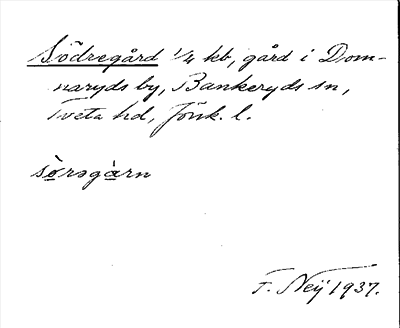 Södregård 1/4 kb, gård i Dom-
naryds by, Bankeryds sn,
Tveta hd, Jönk. l.
sörəgàrn
F. Neij 1937.